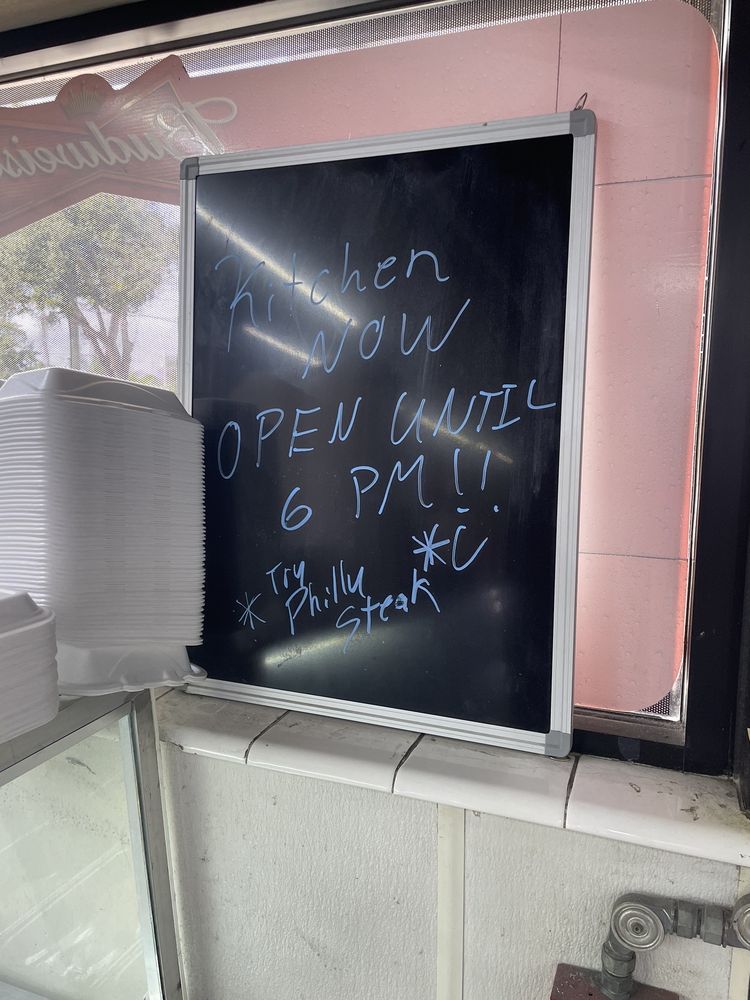 Budweis
Kitchen
NOW
OPEN UNTIL
6 PM!!
* Try
Philly
Steak *